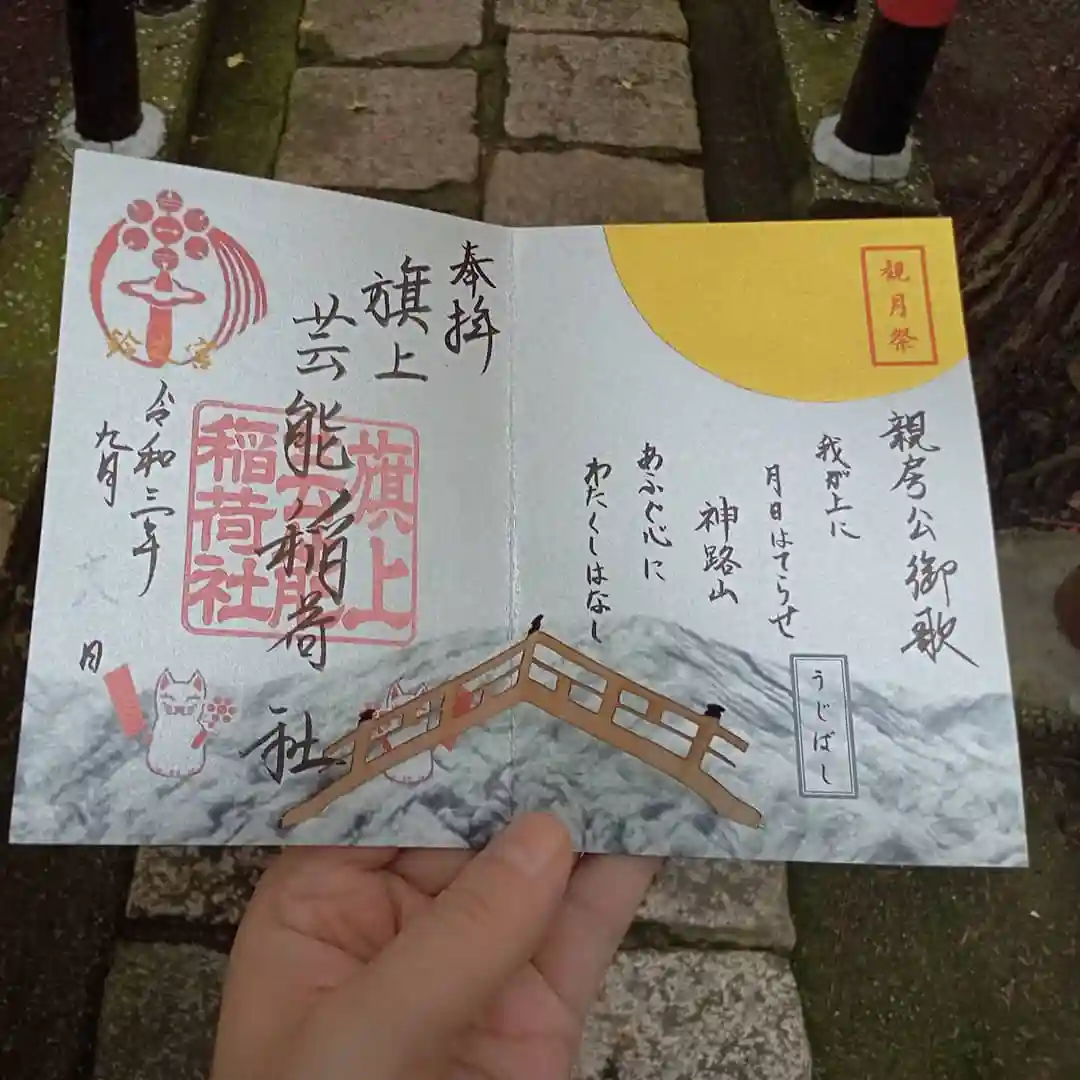 観月祭
親房公御歌
我が上に
月日はてらせ
神路山
あふぐ心に
わたくしはなし
うじばし
奉拝
旗上
芸能稲荷
社
旗上
芸能
稲荷社
令和三年
九月
日